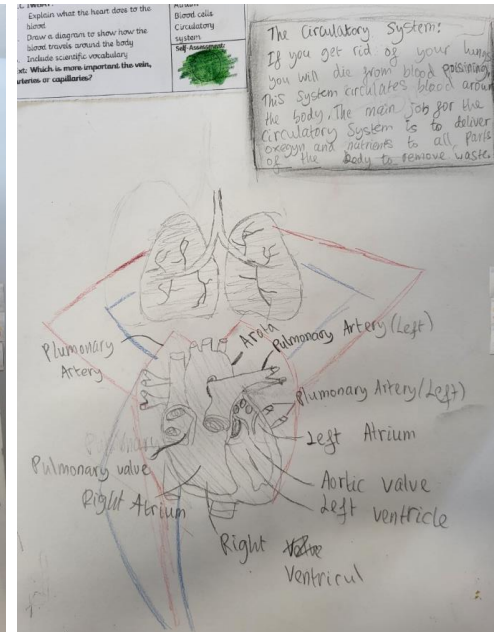 Explain what the heart does to the
blood
Draw a diagram to show how the
blood travels around the body
Include scientific vocabulary
Which is more important the vein,
arteries or capillaries?
Blood cells
Circulatory
system
Self-Assessment:
The Circulatory System:
If you get rid of your lungs
you will die from blood poisining.
This system circulates blood around
the body. The main job for the
circulatory System is to deliver
oxegyn and natrients to all parts
of the body to remove waste.
Plumonary
Artery
Arota
Pulmonary Artery (Left)
Plumonary Artery (Left)
Left Atrium
Pulmonary
Pulmonary valve
Right Atrium
Aortic valve
Left ventricle
Right
Ventricul